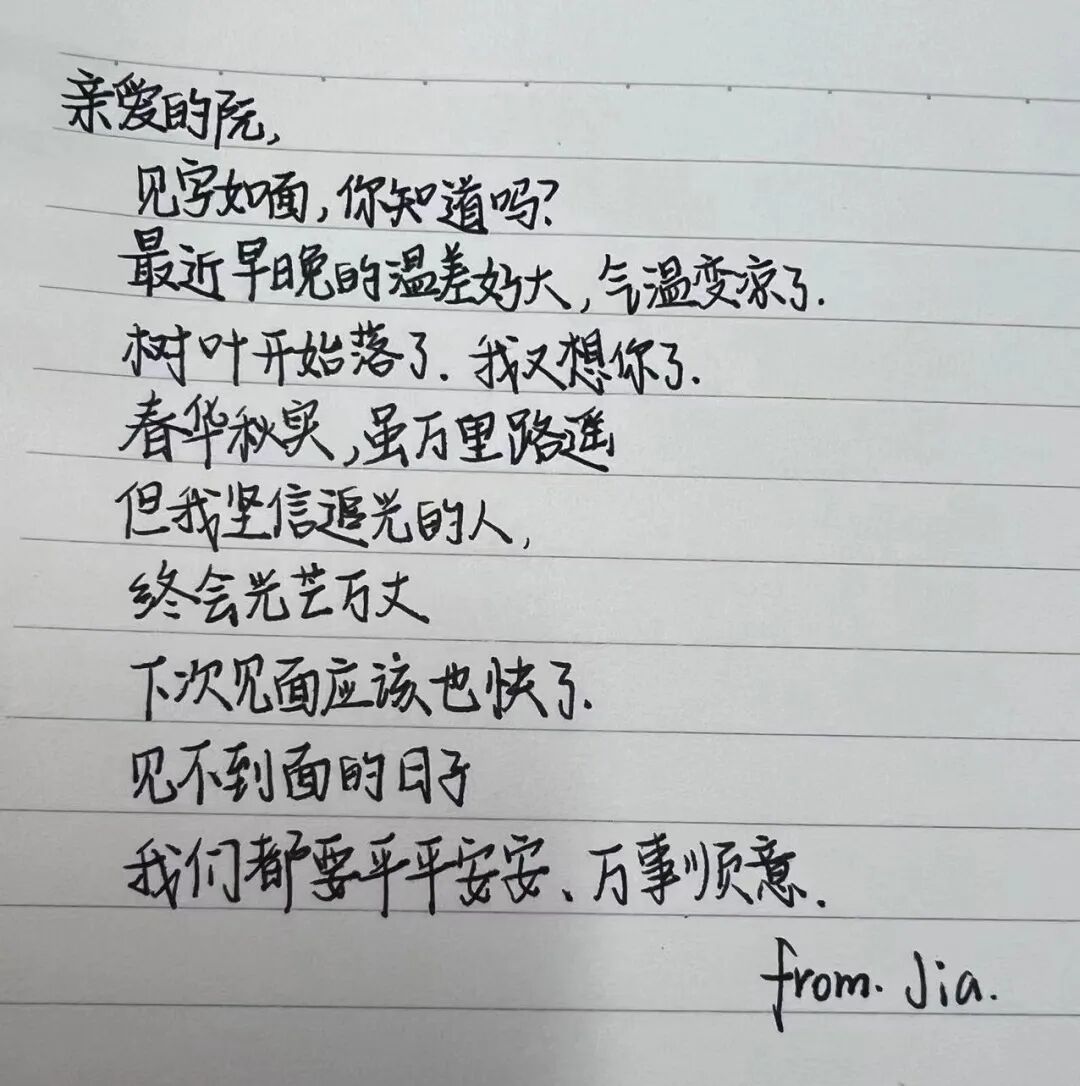 亲爱的阮,
见字如面,你知道吗?
最近早晚的温差好大,气温变凉了.
树叶开始落了.我又想你了.
春华秋实,虽万里路遥
但我坚信追光的人,
终会光芒万丈
下次见面应该也快了.
见不到面的日子
我们都要平平安安、万事顺意.
from. Jia.